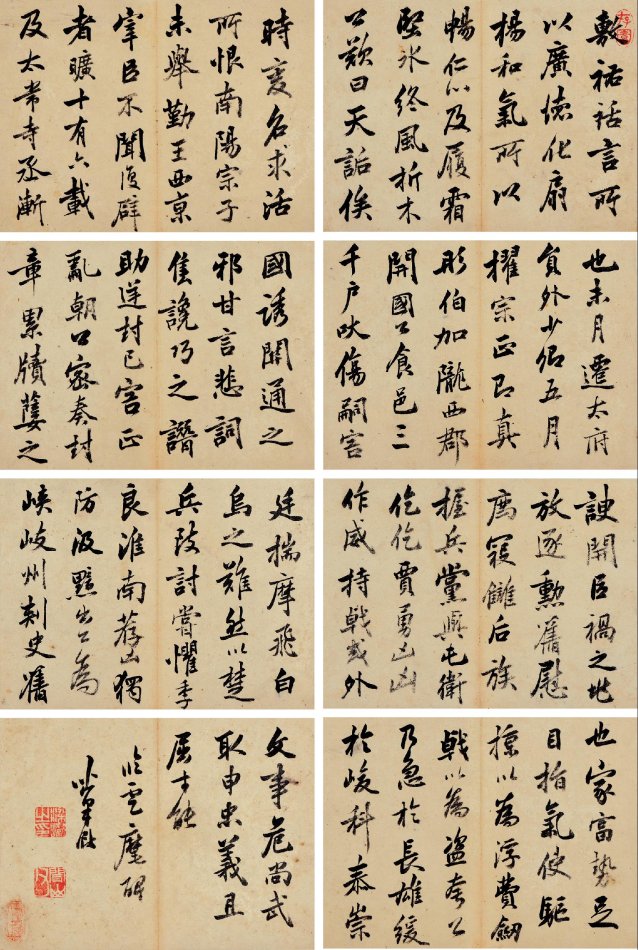 敷祐話言所
以廣德化扇
揚和氣所以
暢仁心及履霜
堅氷終風折木
公歎曰天詬俟
時變名求活
所恨南陽宗子
未舉勤王西京
宰臣不聞復辟
者曠十有六載
及太常寺丞漸
也未月遷太府
員外少卿五月
擢宗正即真
彤伯加隴西郡
開國公食邑三
千户吠傷嗣害
國誘關通之
邪甘言悲詞
售讒巧之譖
助逆封己害正
亂朝公密奏封
章累牘萋之
諛開臣禍之兆
放逐勳舊慰
薦寇讎后族
握兵黨與屯衛
仡仡賈勇凶凶
作威持戟或外
廷揣摩飛白
烏之難然以楚
兵致討嘗懼季
良淮南薦凶獨
防汲黯出公為
峽岐州刺史舊
也家富勢足
目指氣使驅
掠以為浮費劔
戟以為盜夸公
乃急於長雄緩
於峻科泰崇
文事危尚武
取申忠義且
屈才能
臨雲麾碑